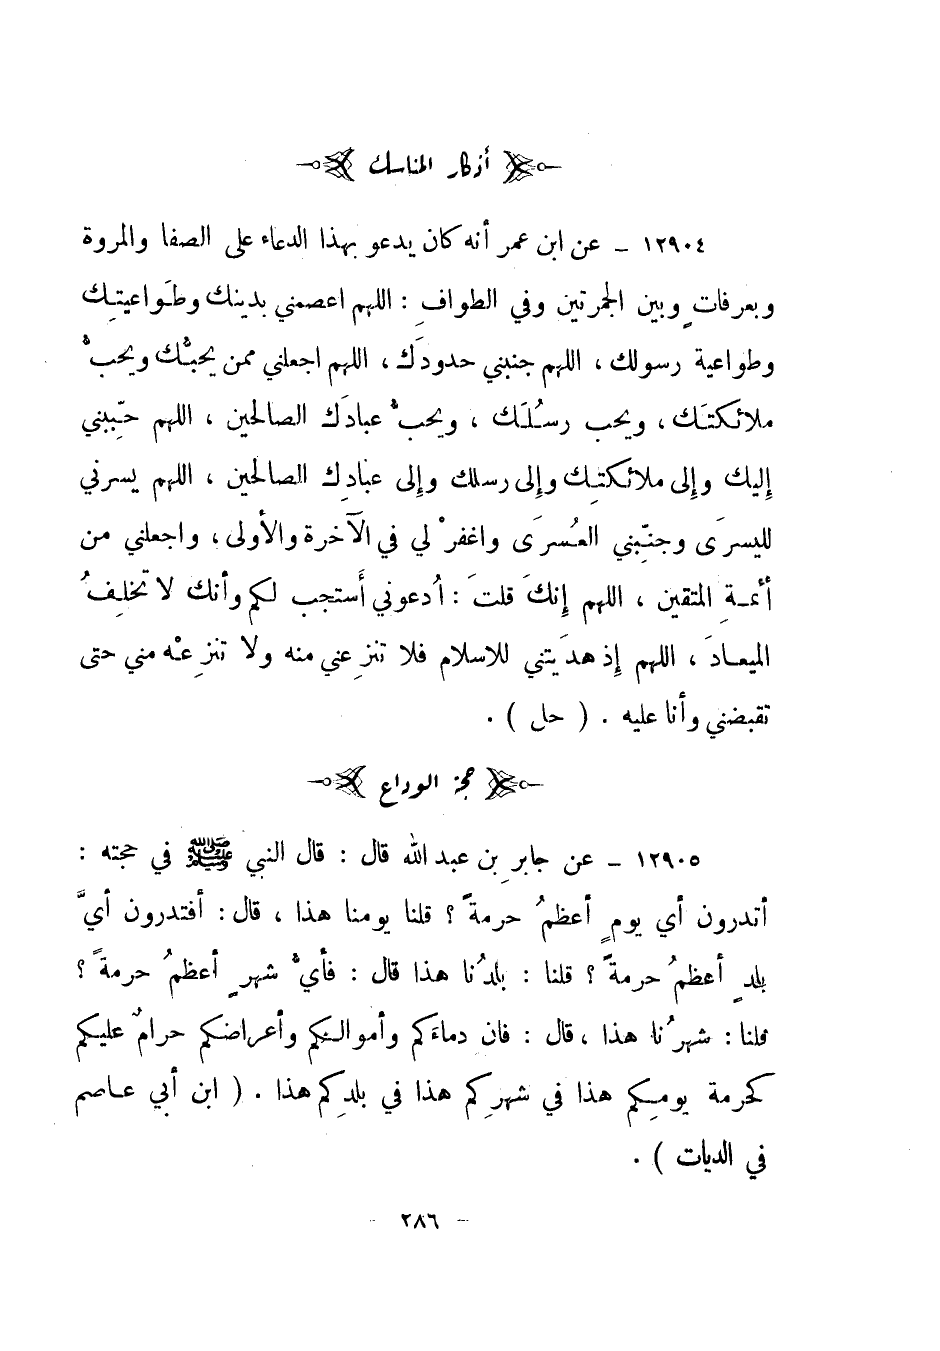 أذكار المناسك
١٢٩٠٤ ـ عن ابن عمر أنه كان يدعو بهذا الدعاء على الصفا والمروة
وبعرفاتٍ وبين الجمرتين وفي الطوافِ : اللهم اعصمني بدينك وطَواعيتِك
وطواعية رسولك ، اللهم جنبني حدودَك ، اللهم اجعلني ممن يحبُّك ويحبُّ
ملائكتَك ، ويحب رسُلَك ، ويحبُّ عبادَك الصالحين ، اللهم حبِّبني
إليك وإلى ملائكتِك وإلى رسلك وإلى عبادِك الصالحين ، اللهم يسرني
لليسرَى وجنبِّني العُسرَى واغفرْ لي في الآخرة والأولى ، واجعلني من
أئمةِ المتقين ، اللهم إنكَ قلتَ : اُدعوني أَستجب لكم وأنك لا تخلِفُ
الميعادَ ، اللهم إذ هدَيتني للاسلام فلا تنزِعني منه ولا تنزِعهْ مني حتى
تقبضني وأنا عليه . ( حل ) .
حجة الوداع
١٢٩٠٥ ـ عن جابرِ بن عبد الله قال : قال النبي ﷺ في حجته :
أتدرون أي يومٍ أعظمُ حرمةً ؟ قلنا يومنا هذا ، قال : أفتدرون أيَّ
بلدٍ أعظمُ حرمةً ؟ قلنا : بلدُنا هذا قال : فأيُّ شهرٍ أعظمُ حرمةً ؟
قلنا : شهرُنا هذا ، قال : فان دماءَكم وأموالَكم وأعراضكم حرامٌ عليكم
كحرمة يومِكم هذا في شهرِكم هذا في بلدِكم هذا . ( ابن أبي عاصم
في الديات ) .
- ٢٨٦ -